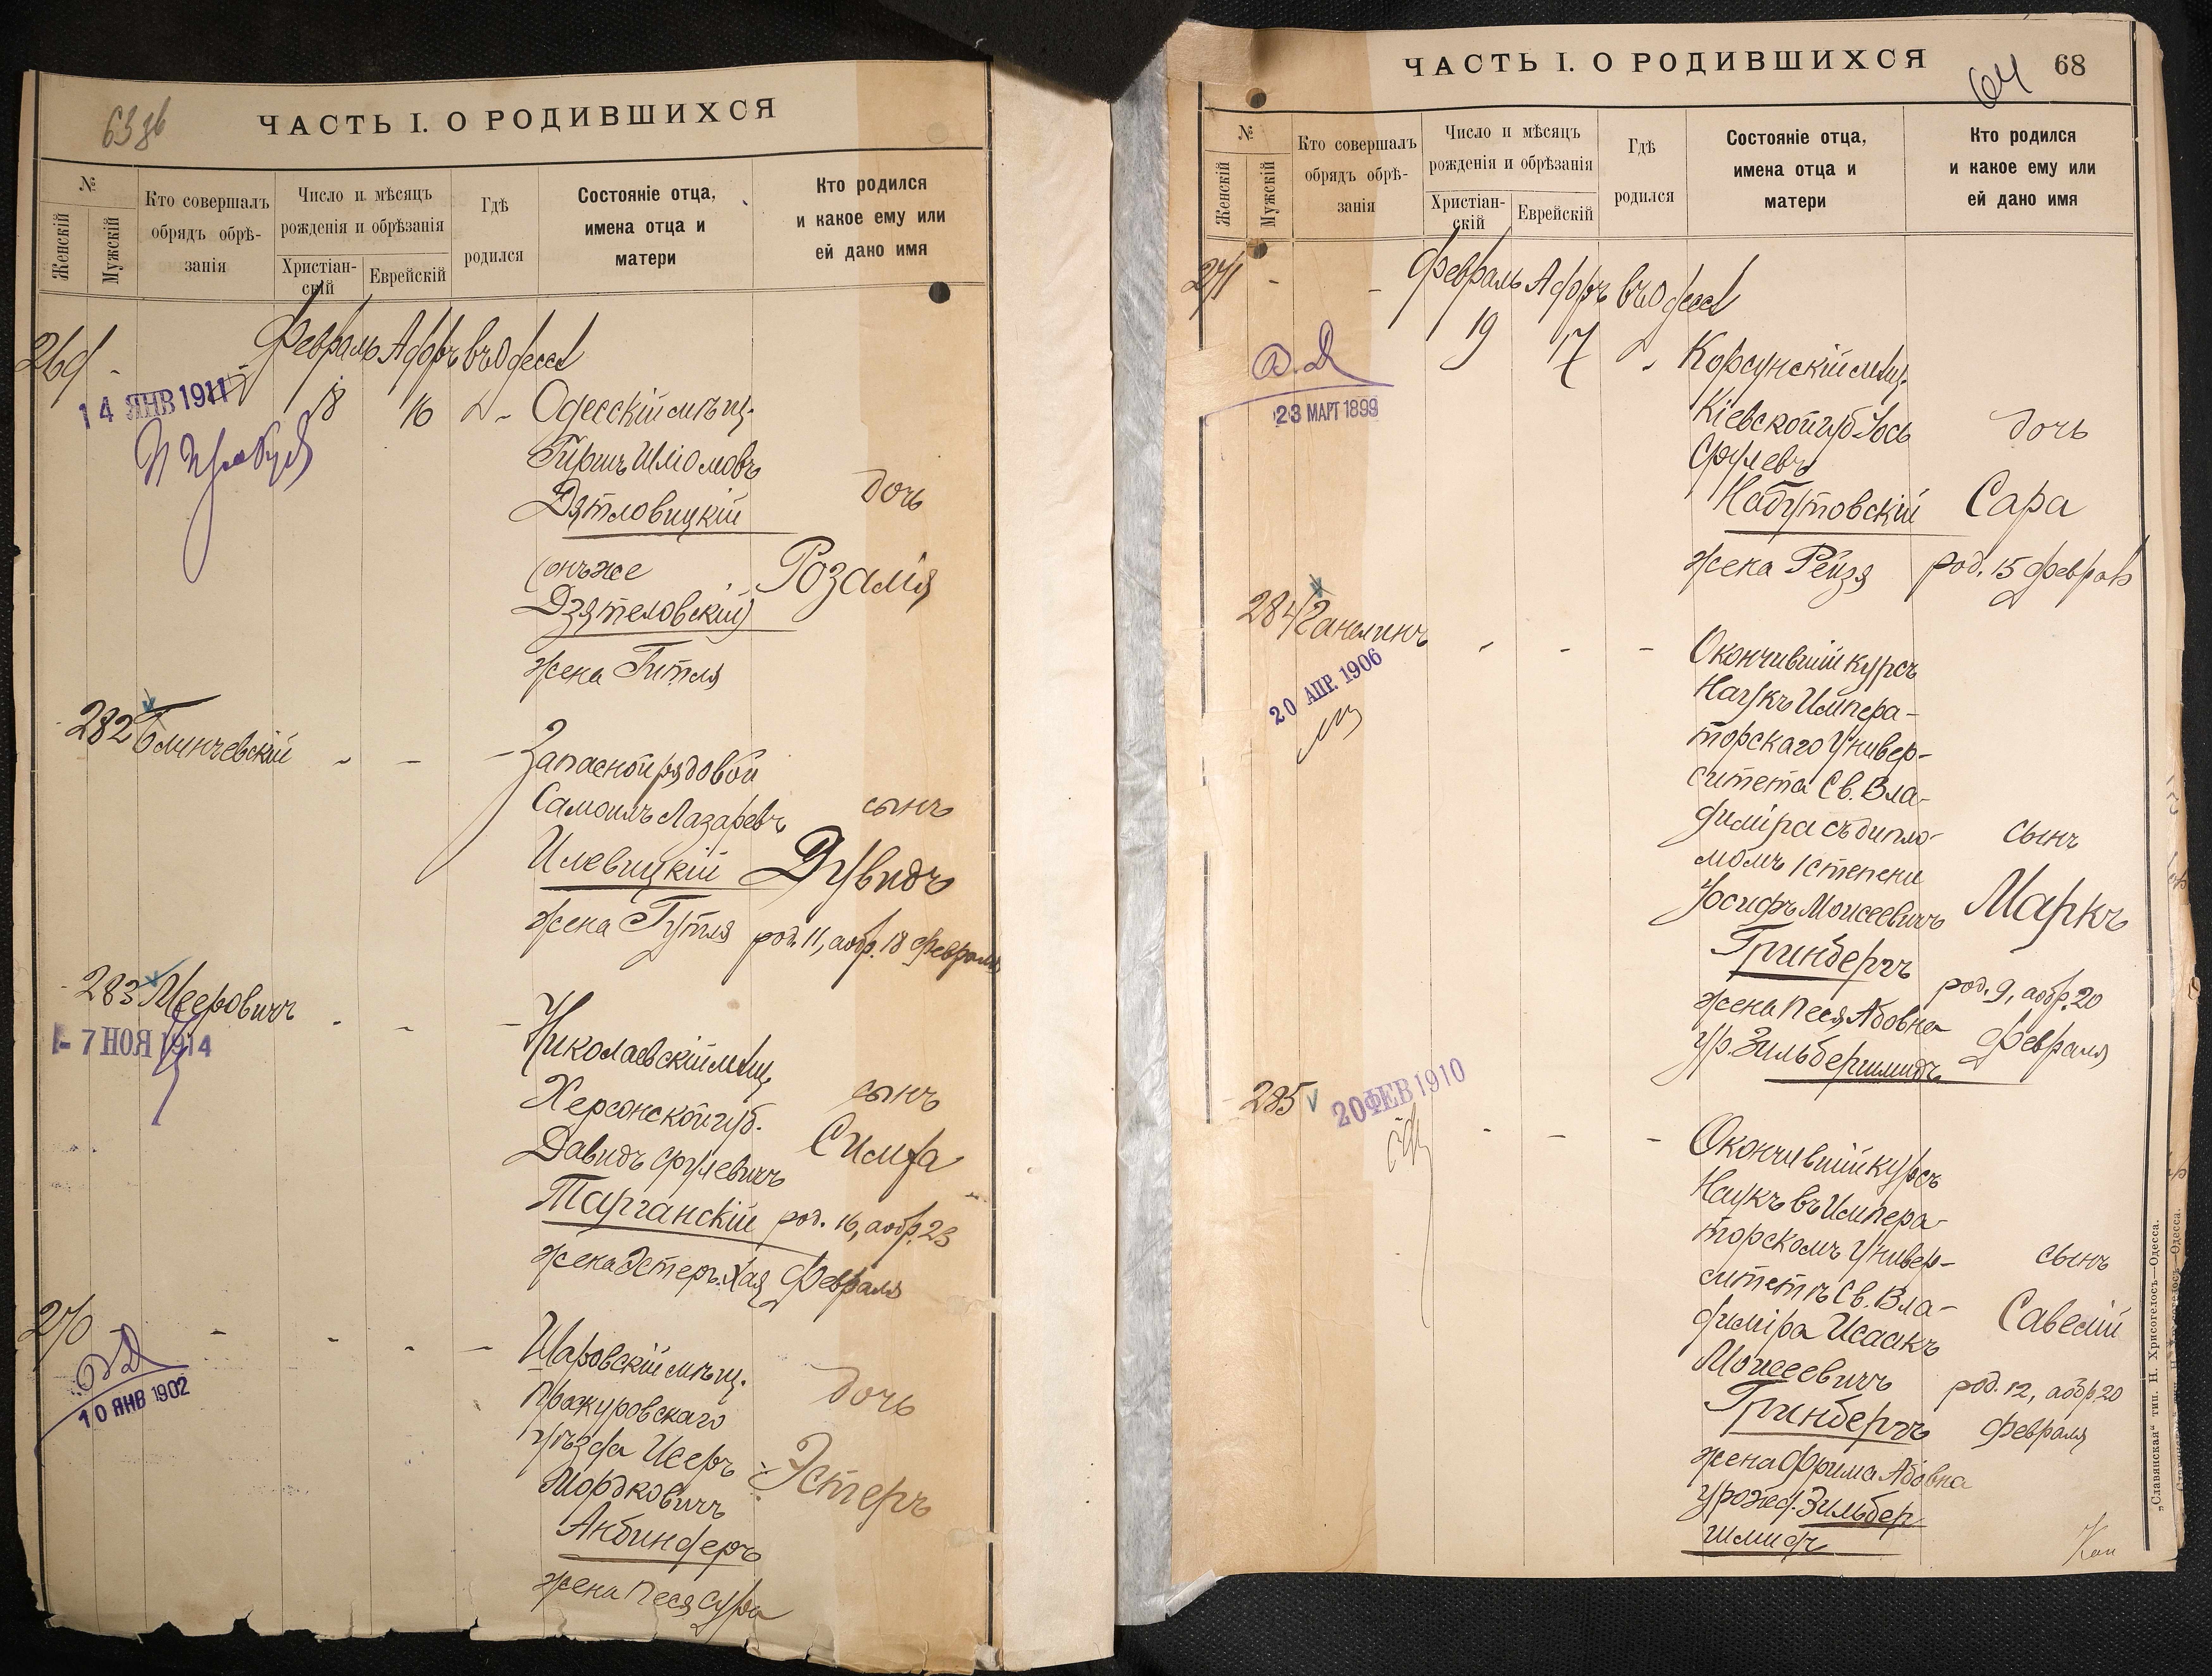 63 об
ЧАСТЬ I. О РОДИВШИХСЯ
№
Женскій
Мужскій
Кто совершалъ
обрядъ обрѣ-
занія
Число и мѣсяцъ
рожденія и обрѣзанія
Христіан-
скій
Еврейскій
Гдѣ
родился
Состояніе отца,
имена отца и
матери
Кто родился
и какое ему или
ей дано имя
Февраль Адаръ въ Одессѣ
269 -
14 ЯНВ 1911
18 16
Одесскій мѣщ.
Гиршъ Шліомовъ
Дятловицкій
дочь
(онъ же
Дзятеловскій)
Розалія
жена Гитля
282 Блинчевскій - - -
Запасной рядовой
Самоилъ Лазаревъ
сынъ
Илевицкій
Дувидъ
жена Гутля
род. 11, а обр. 18 февраля
283 Мееровичъ - - -
- 7 НОЯ 1914
Николаевскій мѣщ.
Херсонской губ.
сынъ
Давидъ Срулевичъ
Симха
Тарганскій
род. 16, а обр. 23
жена Эстеръ-Хая
Февраля
270 - - - -
10 ЯНВ 1902
Шаровскій мѣщ.
Проскуровскаго
дочь
уѣзда Исеръ
Мордковичъ
Эстеръ
Анбиндеръ
жена Песя Сура
ЧАСТЬ I. О РОДИВШИХСЯ
64
68
№
Женскій
Мужскій
Кто совершалъ
обрядъ обрѣ-
занія
Число и мѣсяцъ
рожденія и обрѣзанія
Христіан-
скій
Еврейскій
Гдѣ
родился
Состояніе отца,
имена отца и
матери
Кто родился
и какое ему или
ей дано имя
271 - -
Февраль Адаръ въ Одессѣ
19 17
23 МАРТ 1899
Корсунскій мѣщ.
Кіевской губ. Іось
дочь
Срулевъ
Набутовскій
Сара
жена Рейзя
род. 15 февраля
284 Ганелинъ - - -
20 АПР. 1906
Окончившій курсъ
Наукъ Импера-
торскаго Универ-
ситета Св. Вла-
диміра съ дипло-
сынъ
момъ I степени
Іосифъ Моисеевичъ
Маркъ
Гринбергъ
род. 9, а обр. 20
жена Песя Абовна
Февраля
ур. Зильбершмидъ
285
20 ФЕВ 1910
- - -
Окончившій курсъ
Наукъ въ Импера-
торскомъ Универ-
сынъ
ситетѣ Св. Вла-
диміра Исаакъ
Савелій
Моисеевичъ
род. 12, а обр. 20
Гринбергъ
февраля
жена Фрима Абовна
урожед. Зильбер
шмидъ
„Славянская" тип. Н. Хрисогелосъ—Одесса.